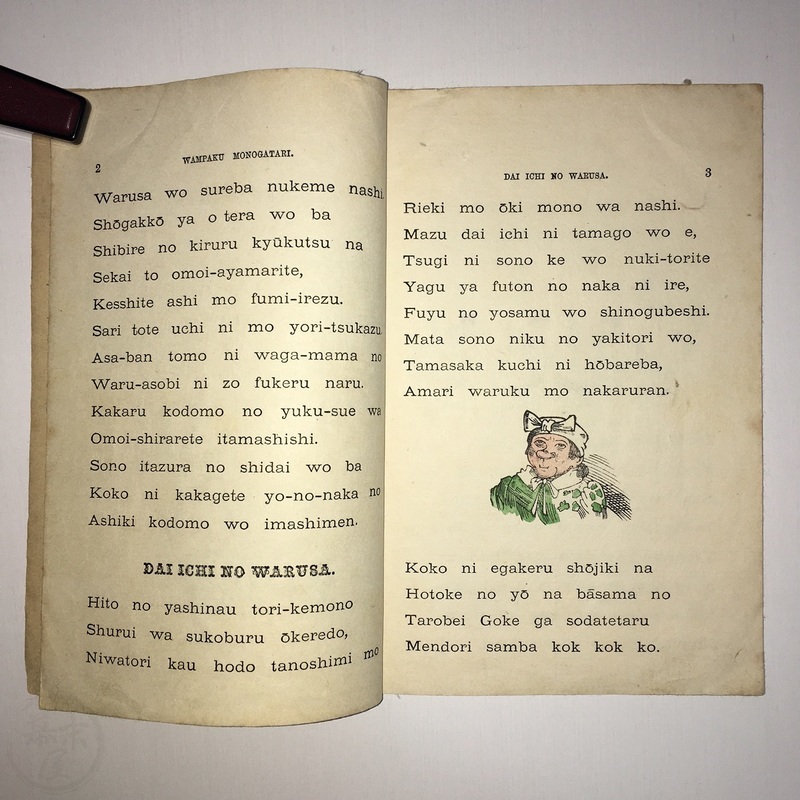 2
WAMPAKU MONOGATARI.
Warusa wo sureba nukeme nashi.
Shōgakkō ya o tera wo ba
Shibire no kiruru kyūkutsu na
Sekai to omoi-ayamarite,
Kesshite ashi mo fumi-irezu.
Sari tote uchi ni mo yori-tsukazu.
Asa-ban tomo ni waga-mama no
Waru-asobi ni zo fukeru naru.
Kakaru kodomo no yuku-sue wa
Omoi-shirarete itamashishi.
Sono itazura no shidai wo ba
Koko ni kakagete yo-no-naka no
Ashiki kodomo wo imashimen.
DAI ICHI NO WARUSA.
Hito no yashinau tori-kemono
Shurui wa sukoburu ōkeredo,
Niwatori kau hodo tanoshimi mo
DAI ICHI NO WARUSA.
3
Rieki mo ōki mono wa nashi.
Mazu dai ichi ni tamago wo e,
Tsugi ni sono ke wo nuki-torite
Yagu ya futon no naka ni ire,
Fuyu no yosamu wo shinogubeshi.
Mata sono niku no yakitori wo,
Tamasaka kuchi ni hōbareba,
Amari waruku mo nakaruran.
Koko ni egakeru shōjiki na
Hotoke no yō na bāsama no
Tarobei Goke ga sodatetaru
Mendori samba kok kok ko.